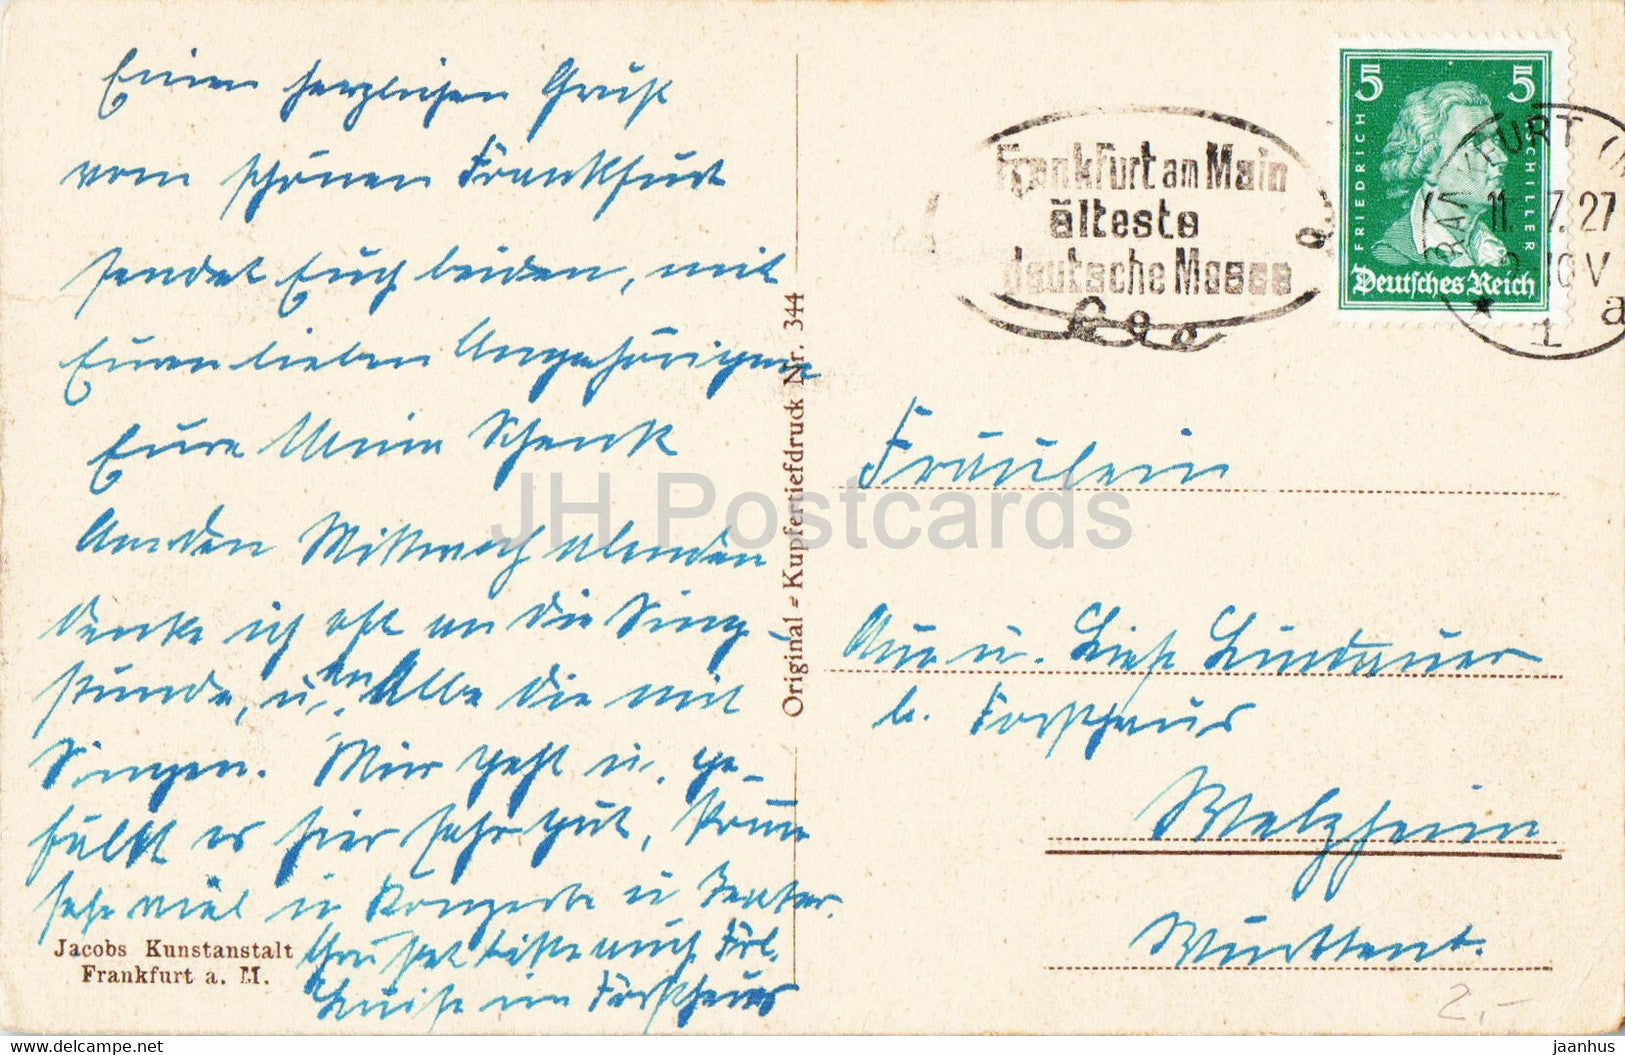 Einen herzlichen Gruß
vom schönen Frankfurt
sendet Euch beiden, mit
Euren lieben Angehörigen
Eure Mina Schenk
An den Mittwoch abenden
denke ich oft an die Sing-
stunde, u. an Alle die mit
Singen. Mir geht u. ge-
fällt es hier sehr gut, komme
sehr viel in Konzerte u Teater.
Grüßet bitte auch Frl.
Luise im Forsthaus
Jacobs Kunstanstalt
Frankfurt a. M.
Original-Kupfertiefdruck Nr. 344
JH Postcards
Frankfurt am Main
älteste
deutsche Messe
5 5
FRIEDRICH SCHILLER
Deutsches Reich
FRANKFURT (M
11. 7.27
10 V
1 a
Fräulein
u. Liese Lindauer
b. Forsthaus
Welzheim
Württent.
2,-
delcampe.net
jaanhus